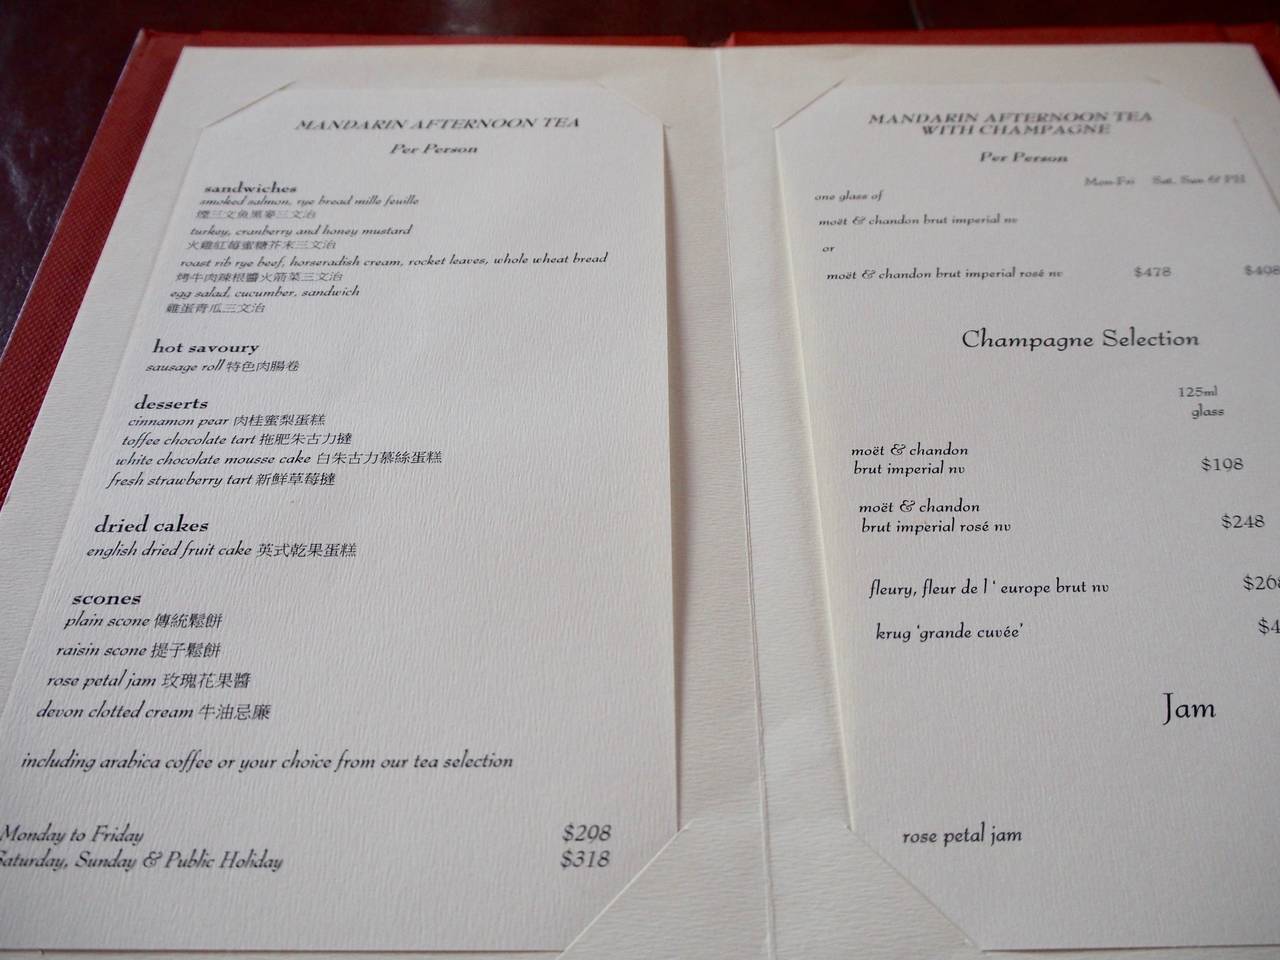 MANDARIN AFTERNOON TEA
Per Person
sandwiches
smoked salmon, rye bread mille feuille
煙三文魚黑麥三文治
turkey, cranberry and honey mustard
火雞紅莓蜜糖芥末三文治
roast rib rye beef, horseradish cream, rocket leaves, whole wheat bread
烤牛肉辣根醬火箭菜三文治
egg salad, cucumber, sandwich
雞蛋青瓜三文治
hot savoury
sausage roll 特色肉腸卷
desserts
cinnamon pear 肉桂蜜梨蛋糕
toffee chocolate tart 拖肥朱古力撻
white chocolate mousse cake 白朱古力慕絲蛋糕
fresh strawberry tart 新鮮草莓撻
dried cakes
english dried fruit cake 英式乾果蛋糕
scones
plain scone 傳統鬆餅
raisin scone 提子鬆餅
rose petal jam 玫瑰花果醬
devon clotted cream 牛油忌廉
including arabica coffee or your choice from our tea selection
Monday to Friday $298
Saturday, Sunday & Public Holiday $318
MANDARIN AFTERNOON TEA
WITH CHAMPAGNE
Per Person
Mon-Fri Sat, Sun & PH
one glass of
moët & chandon brut imperial nv
or
moët & chandon brut imperial rosé nv $478 $498
Champagne Selection
125ml
glass
moët & chandon
brut imperial nv $198
moët & chandon
brut imperial rosé nv $248
fleury, fleur de l ' europe brut nv $268
krug 'grande cuvée' $4
Jam
rose petal jam